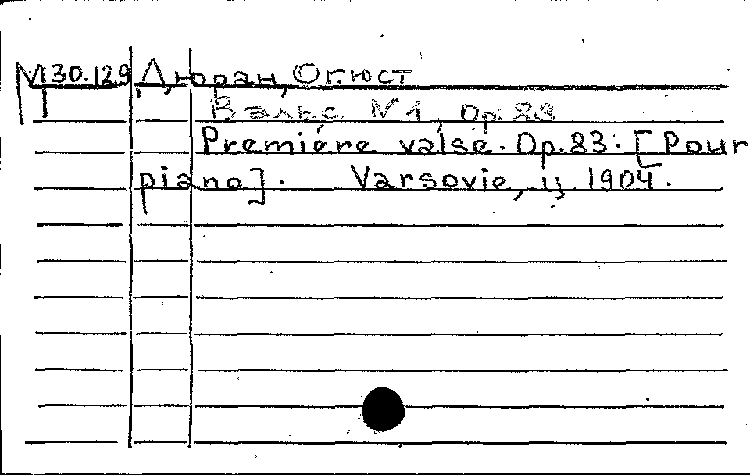 М 30.129 Дюран, Огюст
Вальс № 1, Op. 83
Premiére valse. Op. 83. [Pour
piano]. Varsovie, ц. 1904.